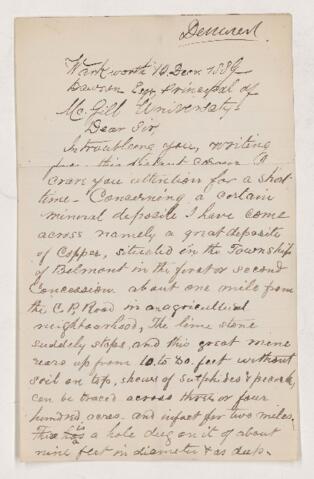 Warkworth 10 Decr 1889
Dawson Esqr Principal of
Mc,Gill University
Dear Sir
introubleing you, writing
from this distant corner I
crave you attention for a short
time - Concerning a certain
mineral deposite I have come
across namely a great deposite
of Copper, situated in the Township
of Belmont in the first or second
Concession about one mile from
the C.P. Road in an agricultural
neighbourhood, The lime stone
suddely stops, and this great mine
rears up from 10. to 20. feet without
soil on top, shows of sulphides & peacock,
can be traced across three or four
hundred acres. and infact for two miles.
a hole dug on it of about
nine feet in diameter & as deep.